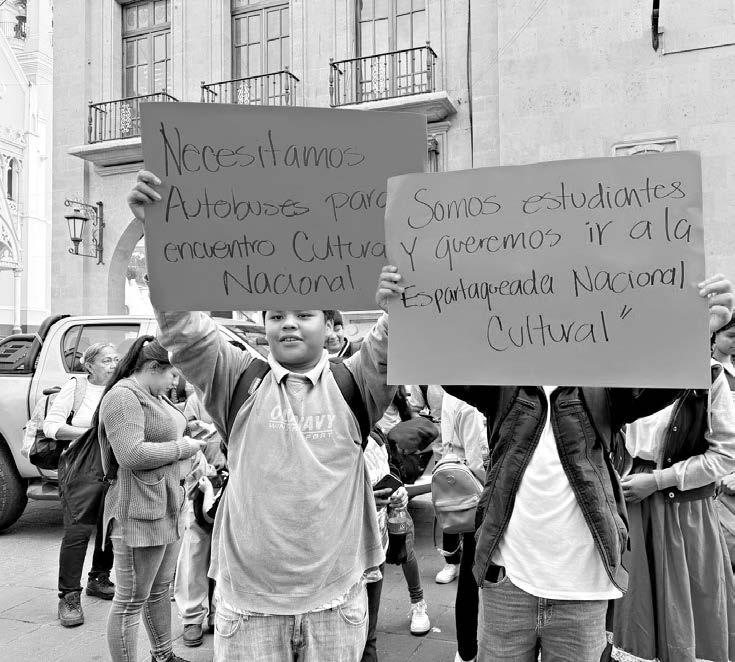 Necesitamos
Autobuses para
encuentro Cultura
Nacional
Somos estudiantes
Y queremos ir a la
Espartaqueada Nacional
Cultural"
OLD NAVY
WINTER SPORT